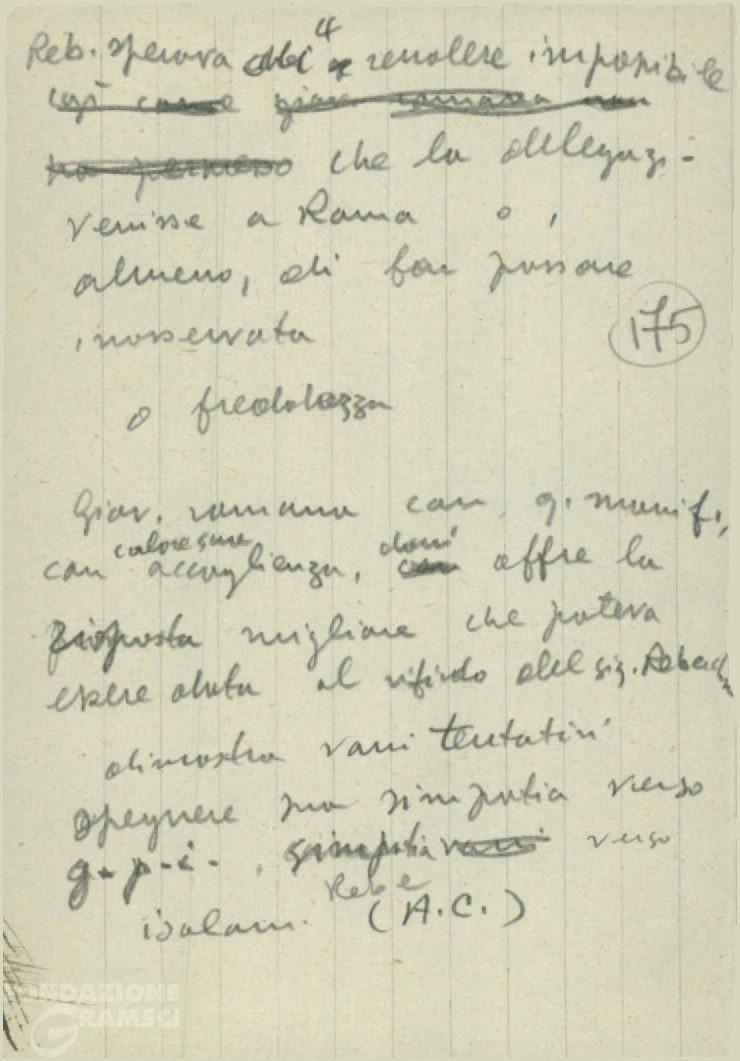 4
Reb. sperava di rendere impossibile
così come giov. romana non
ha permesso che la delegaz.
venisse a Roma o,
almeno, di far passare
inosservata
175
o freddezza
Giov. romana con g. manif.,
calorosa
con accoglienza, doni offre la
risposta migliore che poteva
essere data al rifiuto del sig. Rebecch
dimostra vani tentativi
spegnere sua simpatia verso
g.p.i., simpatia vani verso
Reb e
isolam. (A.C.)
FONDAZIONE
GRAMSCI